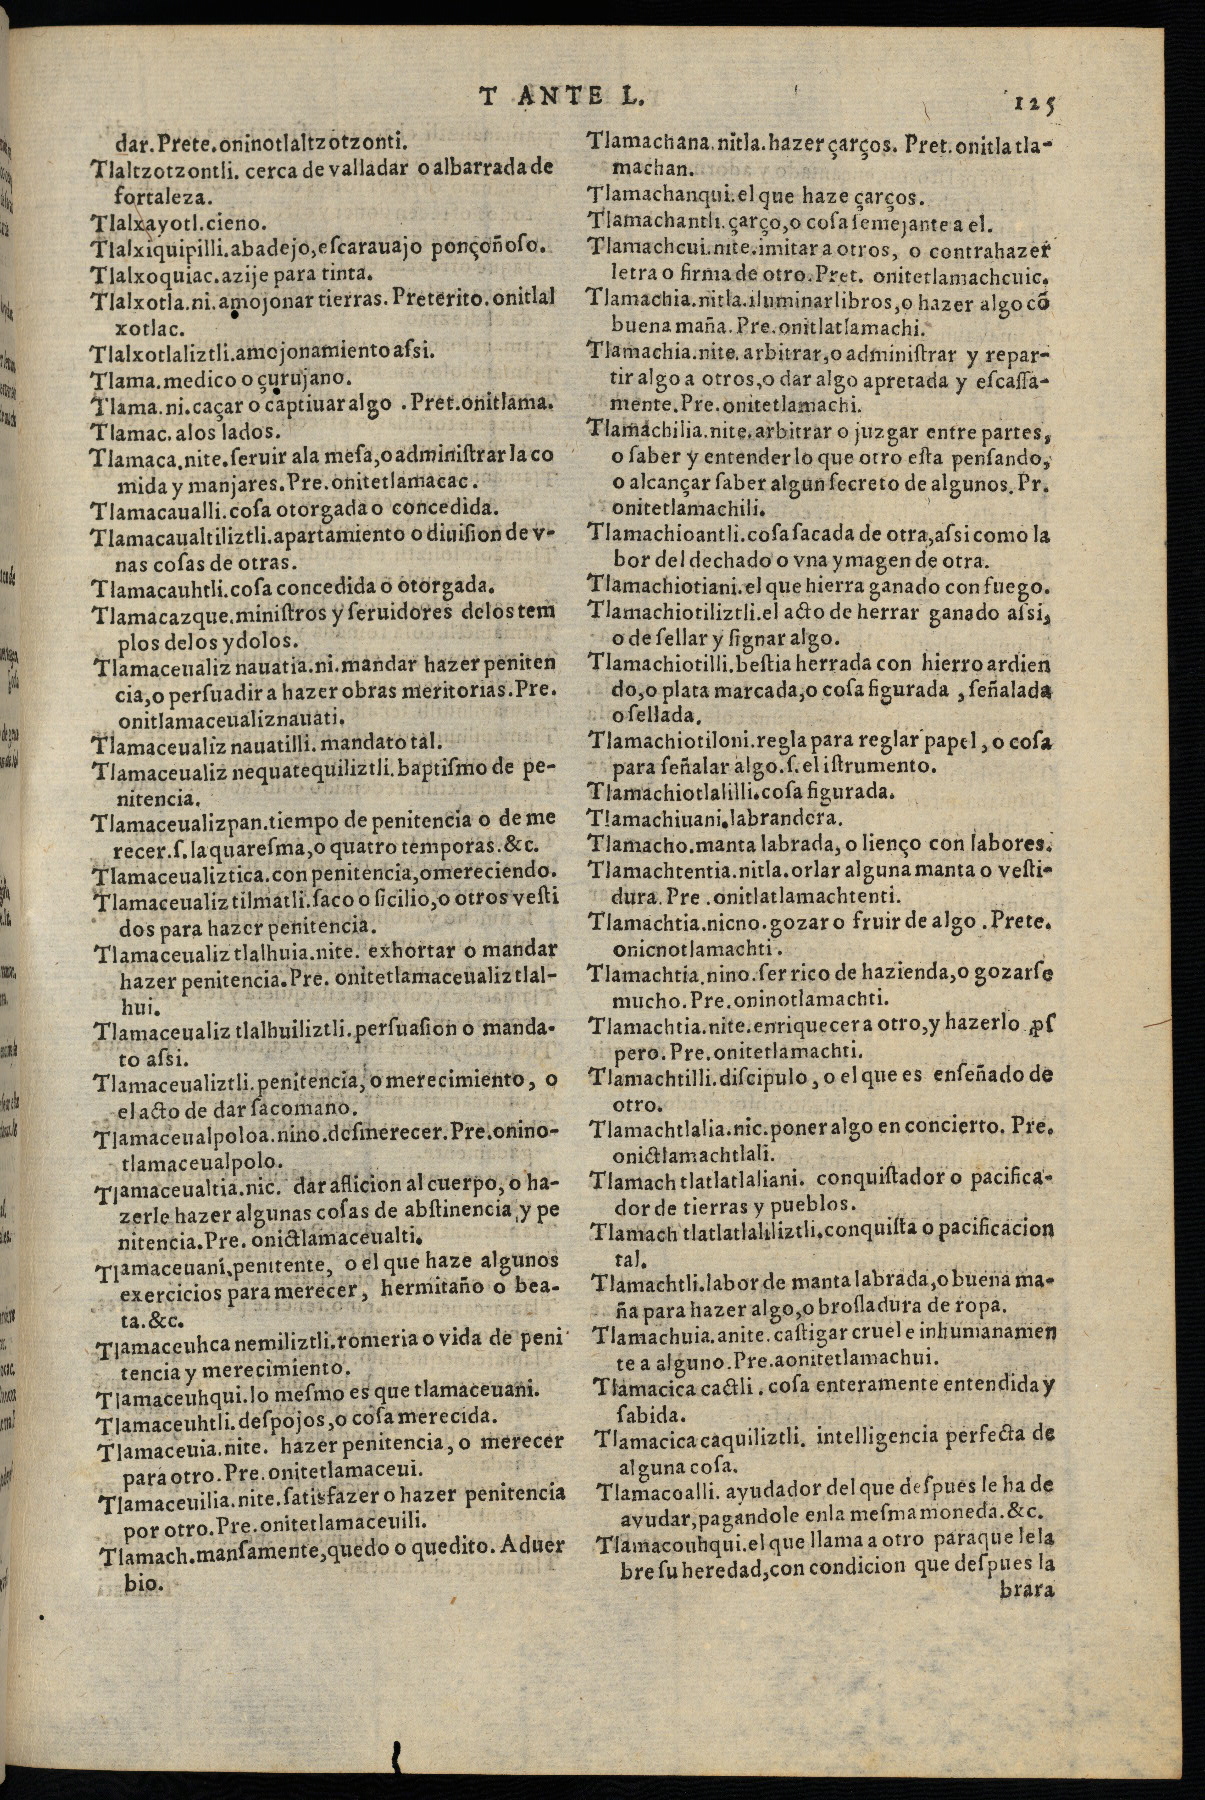 T ANTE L.
125
dar. Prete. oninotlaltzotzonti.
Tlaltzotzontli. cerca de valladar o albarrada de
fortaleza.
Tlalxayotl. cieno.
Tlalxiquipilli. abadejo, eſcarauajo ponçoñoſo.
Tlalxoquiac. azije para tinta.
Tlalxotla. ni. amojonar tierras. Preterito. onitlal
xotlac.
Tlalxotlaliztli. amojonamiento aſsi.
Tlama. medico o çurujano.
Tlama. ni. caçar o captiuar algo. Pret. onitlama.
Tlamac. alos lados.
Tlamaca. nite. ſeruir ala meſa, o adminiſtrar la co
mida y manjares. Pre. onitetlamacac.
Tlamacaualli. coſa otorgada o concedida.
Tlamacaualtiliztli. apartamiento o diuiſion de v-
nas coſas de otras.
Tlamacauhtli. coſa concedida o otorgada.
Tlamacazque. miniſtros y ſeruidores delos tem
plos delos ydolos.
Tlamaceualiz nauatia. ni. mandar hazer peniten
cia, o perſuadir a hazer obras meritorias. Pre.
onitlamaceualiznauati.
Tlamaceualiz nauatilli. mandato tal.
Tlamaceualiz nequatequiliztli. baptiſmo de pe-
nitencia.
Tlamaceualizpan. tiempo de penitencia o de me
recer. ſ. la quareſma, o quatro temporas. &c.
Tlamaceualiztica. con penitencia, o mereciendo.
Tlamaceualiz tilmatli. ſaco o ſicilio, o otros veſti
dos para hazer penitencia.
Tlamaceualiz tlalhuia. nite. exhortar o mandar
hazer penitencia. Pre. onitetlamaceualiz tlal-
hui.
Tlamaceualiz tlalhuiliztli. perſuaſion o manda-
to aſsi.
Tlamaceualiztli. penitencia, o merecimiento, o
el acto de dar ſacomano.
Tlamaceualpoloa. nino. deſmerecer. Pre. onino-
tlamaceualpolo.
Tlamaceualtia. nic. dar aflicion al cuerpo, o ha-
zerle hazer algunas coſas de abſtinencia, y pe
nitencia. Pre. onictlamaceualti.
Tlamaceuani. penitente, o el que haze algunos
exercicios para merecer, hermitaño o bea-
ta. &c.
Tlamaceuhca nemiliztli. romeria o vida de peni
tencia y merecimiento.
Tlamaceuhqui. lo meſmo es que tlamaceuani.
Tlamaceuhtli. deſpojos, o coſa merecida.
Tlamaceuia. nite. hazer penitencia, o merecer
para otro. Pre. onitetlamaceui.
Tlamaceuilia. nite. ſatisfazer o hazer penitencia
por otro. Pre. onitetlamaceuili.
Tlamach. manſamente, quedo o quedito. Aduer
bio.
Tlamachana. nitla. hazer çarços. Pret. onitlatla-
machan.
Tlamachanqui. el que haze çarços.
Tlamachantli. çarço, o coſa ſemejante a el.
Tlamachcui. nite. imitar a otros, o contrahazer
letra o firma de otro. Pret. onitetlamachcuic.
Tlamachia. nitla. iluminar libros, o hazer algo cõ
buena maña. Pre. onitlatlamachi.
Tlamachia. nite. arbitrar, o adminiſtrar y repar-
tir algo a otros, o dar algo apretada y eſcaſſa-
mente. Pre. onitetlamachi.
Tlamachilia. nite. arbitrar o juzgar entre partes,
o ſaber y entender lo que otro eſta penſando,
o alcançar ſaber algun ſecreto de algunos. Pr.
onitetlamachili.
Tlamachioantli. coſa ſacada de otra, aſsi como la
bor del dechado o vna ymagen de otra.
Tlamachiotiani. el que hierra ganado con fuego.
Tlamachiotiliztli. el acto de herrar ganado aſsi,
o de ſellar y ſignar algo.
Tlamachiotilli. beſtia herrada con hierro ardien
do, o plata marcada, o coſa figurada, ſeñalada
o ſellada.
Tlamachiotiloni. regla para reglar papel, o coſa
para ſeñalar algo. ſ. el iſtrumento.
Tlamachiotlalilli. coſa figurada.
Tlamachiuani. labrandera.
Tlamacho. manta labrada, o lienço con labores.
Tlamachtentia. nitla. orlar alguna manta o veſti-
dura. Pre. onitlatlamachtenti.
Tlamachtia. nicno. gozar o fruir de algo. Prete.
onicnotlamachti.
Tlamachtia. nino. ſer rico de hazienda, o gozarſe
mucho. Pre. oninotlamachti.
Tlamachtia. nite. enriquecer a otro, y hazerlo ꝓſ
pero. Pre. onitetlamachti.
Tlamachtilli. diſcipulo, o el que es enſeñado de
otro.
Tlamachtlalia. nic. poner algo en concierto. Pre.
onictlamachtlali.
Tlamach tlatlatlaliani. conquiſtador o pacifica-
dor de tierras y pueblos.
Tlamach tlatlatlaliliztli. conquiſta o pacificacion
tal.
Tlamachtli. labor de manta labrada, o buena ma-
ña para hazer algo, o broſladura de ropa.
Tlamachuia. anite. caſtigar cruel e inhumanamen
te a alguno. Pre. aonitetlamachui.
Tlamacica cactli. coſa enteramente entendida y
ſabida.
Tlamacica caquiliztli. intelligencia perfecta de
alguna coſa.
Tlamacoalli. ayudador del que deſpues le ha de
ayudar, pagandole enla meſma moneda. &c.
Tlamacouhqui. el que llama a otro paraque le la
bre ſu heredad, con condicion que deſpues la
brara